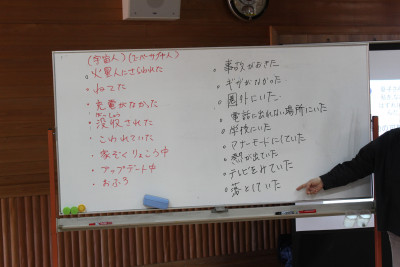 (宇宙人)(スーパーサイヤ人)
○火星人にさらわれた
○ねてた
○充電がなかった
ぼっしゅう
○没収された
○こわれていた
○家ぞくりょこう中
○アップデート中
○おふろ
○事故がおきた
○ギガがなかった
○圏外にいた
○電話に出れない場所にいた
○学校にいた
○マナーモードにしていた
○熱が出ていた
○テレビをみていた
○落としていた